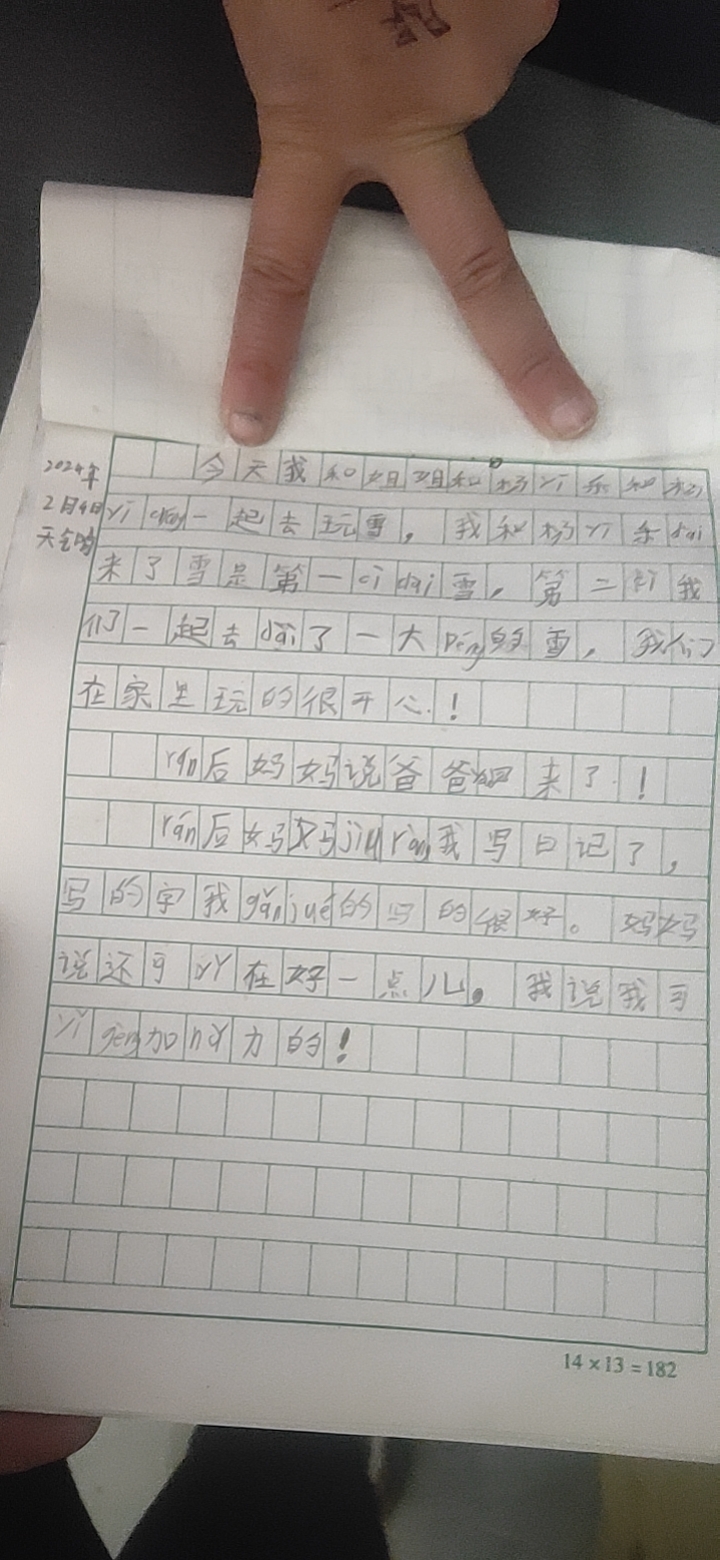 2024年
2月4日
天全晴
今天我和姐姐和杨yi乐和杨
yi 一起去玩雪，我和杨yi乐dai
来了雪是第一cì dài雪，第二cì我
们一起去dài了一大pén的雪，我们
在家里玩的很开心！
rán后妈妈说爸爸回来了！
rán后妈妈jiù ràng我写日记了，
写的字我gǎn jué的写的很好。妈妈
说还可yǐ在好一点儿。我说我可
yǐ gèng加nǔ力的！
14×13=182